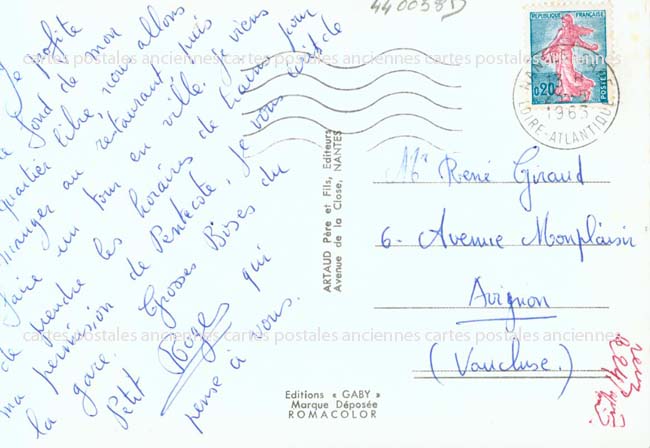 440038D
Je profite
fond de mon
quartier libre, nous allons
manger au restaurant puis
faire un tour en ville. Je viens
de prendre les horaires de trains pour
ma permission de Pentecôte, je vous
la gare. Grosses Bises du
Petit Roger qui
pense à vous.
ARTAUD Père et Fils, Editeurs
Avenue de la Close, NANTES
REPUBLIQUE FRANÇAISE
0,20
POSTES
1963
LOIRE-ATLANTIQUE
Mr René Giraud
6 - Avenue Monplaisir
Avignon
(Vaucluse.)
Editions « GABY »
Marque Déposée
ROMACOLOR
cartes postales anciennes cartes postales anciennes cartes postales anciennes
cartes postales anciennes cartes postales anciennes cartes postales anciennes